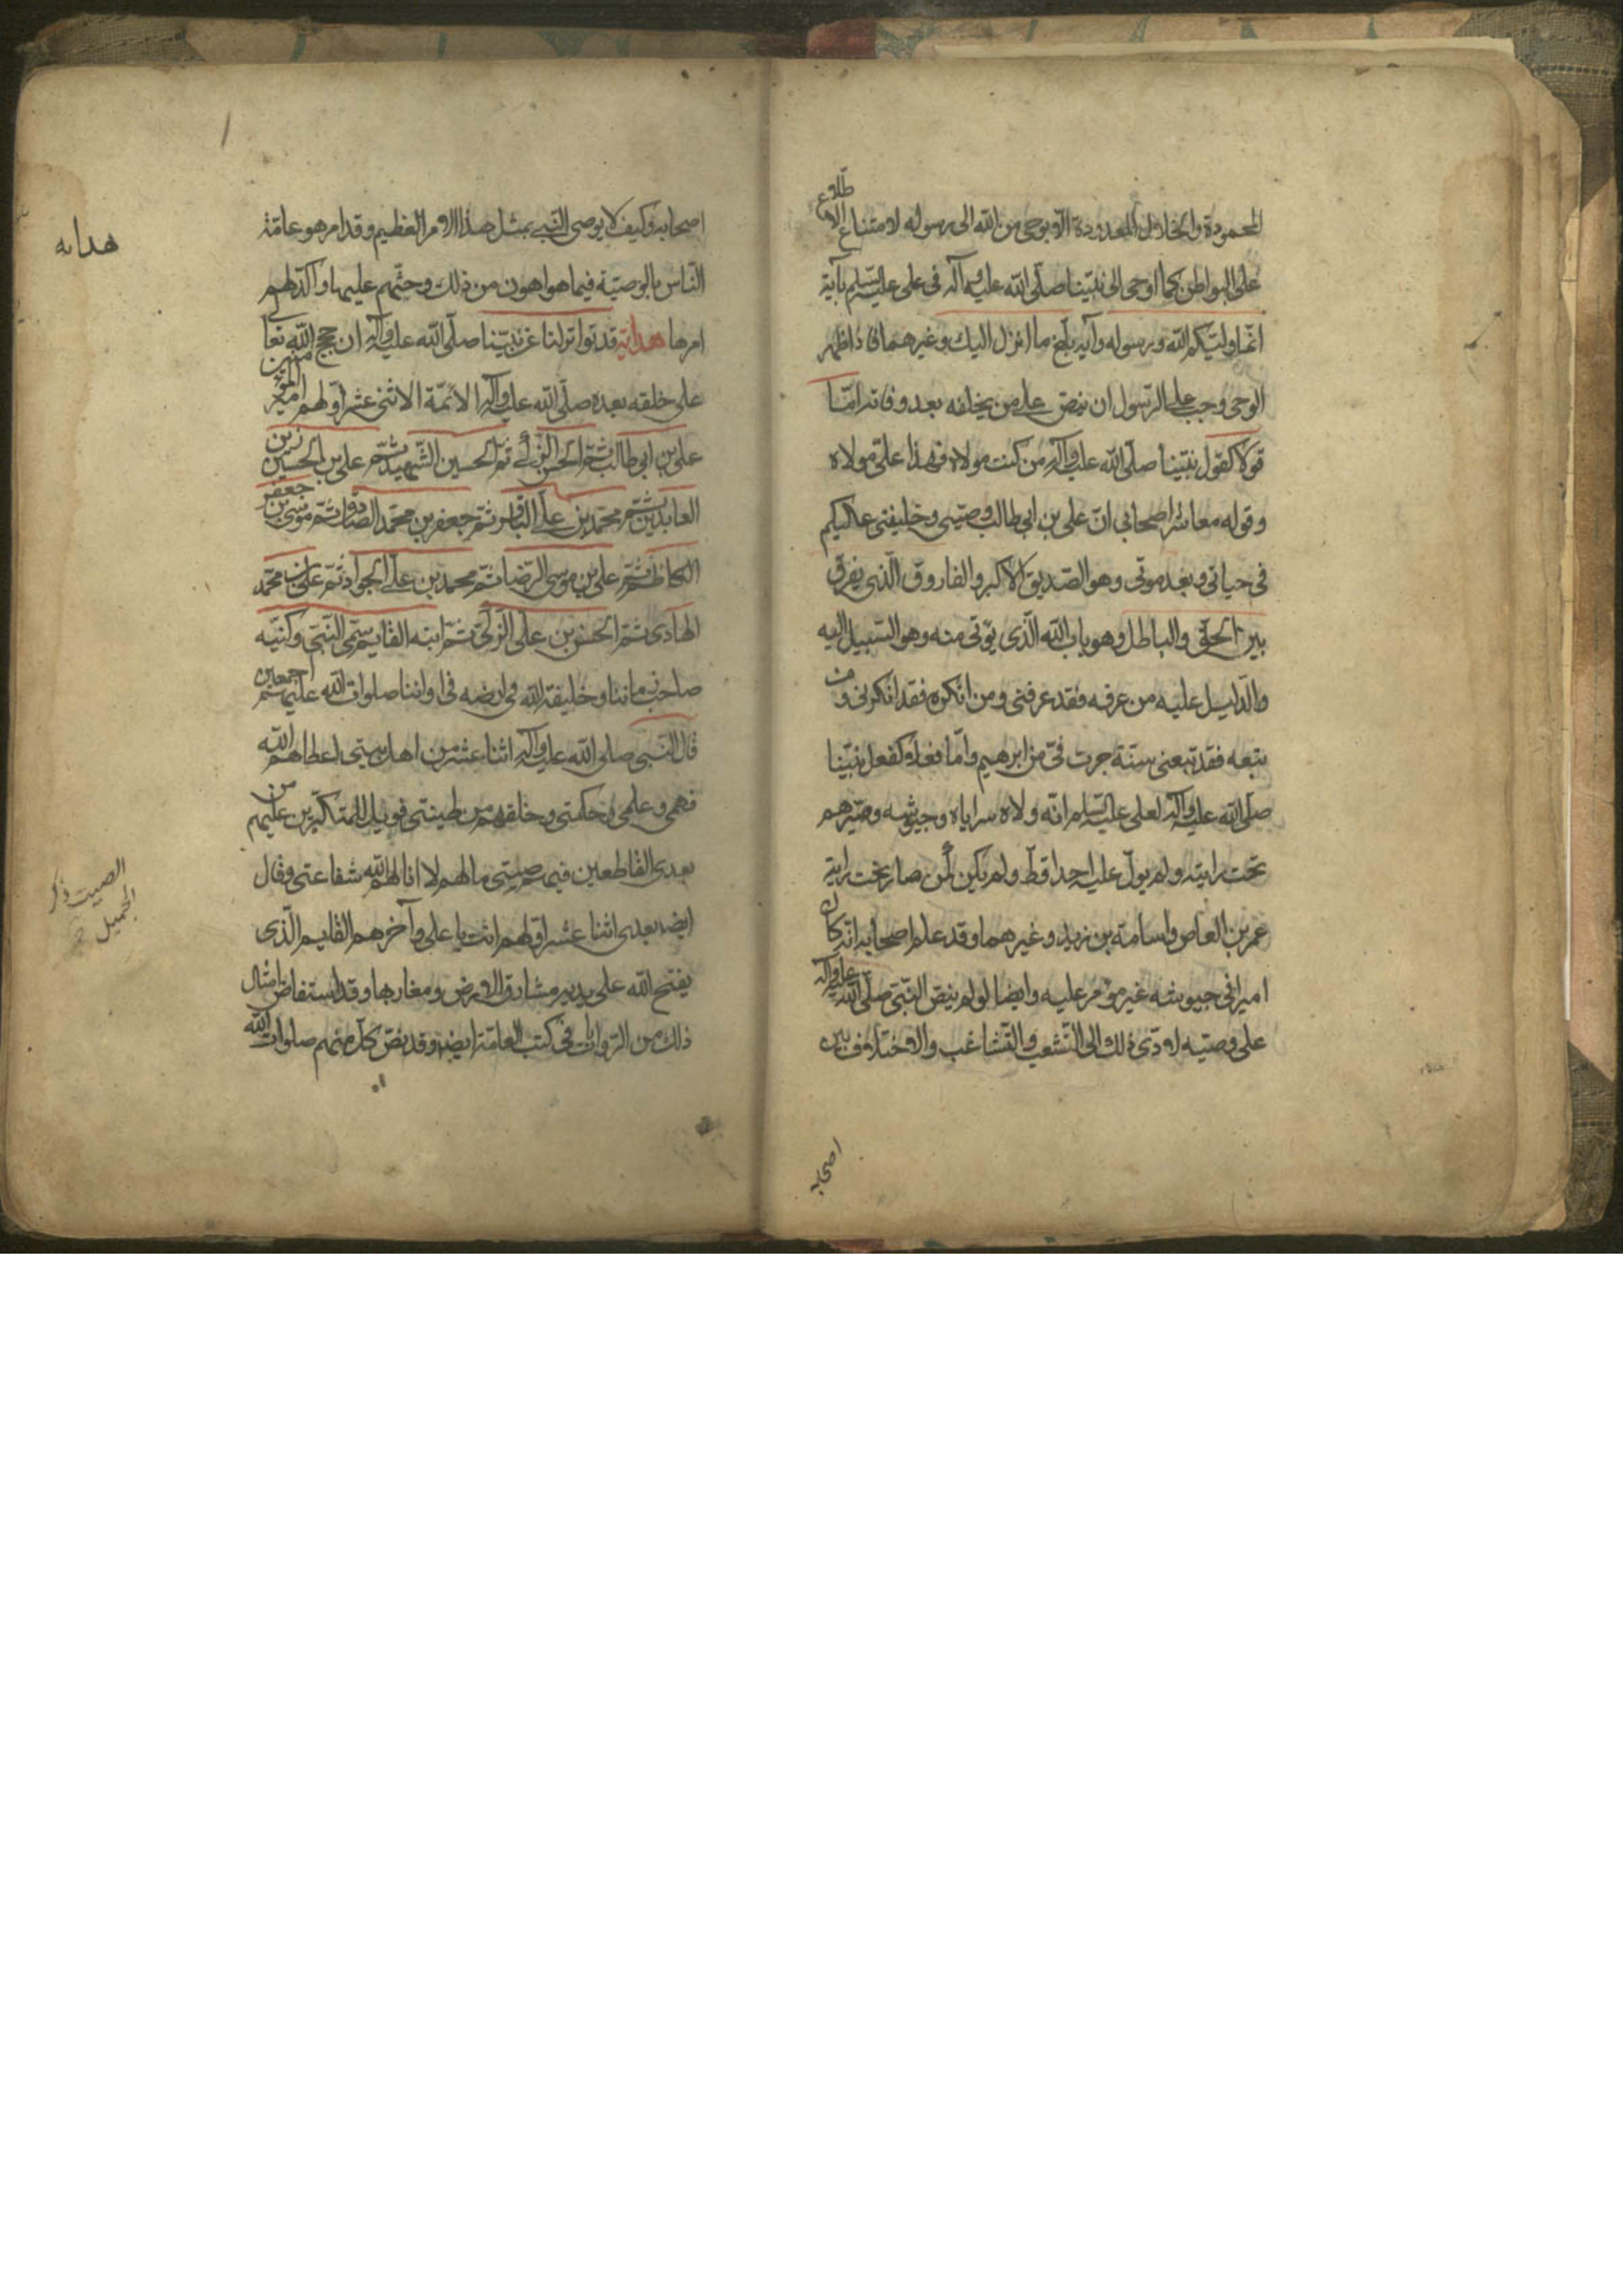 المحمودة والخلال المعدودة الا بوحى من الله الى رسوله لامتناع الاطلاع
على البواطن كما اوحى الى نبينا صلى الله عليه وآله فى على عليه السلم بآية
انما وليكم الله ورسوله وآية بلغ ما انزل اليك وغيرهما فاذا ظهر
الوحى وجب على الرسول ان ينص على من يخلفه بعد وفاته امّا
قولا كقول نبينا صلى الله عليه وآله من كنت مولاه فهذا على مولاه
وقوله معاشر اصحابى انّ على بن ابى طالب وصيى وخليفتى عليكم
فى حياتى وبعد موتى وهو الصديق الاكبر والفاروق الذى يفرق
بين الحق والباطل وهو باب الله الذى يؤتى منه وهو السبيل اليه
والدليل عليه من عرفه فقد عرفنى ومن انكره فقد انكرنى ومن
تبعه فقد تبعنى سنة جرت فىّ من ابرهيم وامّا فعلا كفعل نبينا
صلى الله عليه وآله لعلى عليه السلم انه ولاه سراياه وجيوشه وصيرهم
تحت رايته ولم يولّ عليه احدا قط ولم يكن كمن صار تحت راية
عمر بن العاص واسامة بن زيد وغيرهما وقد علم اصحابه انه كان
اميرا فى جيوشه غير مؤمر عليه وايضا لو لم ينص النبى صلى الله عليه وآله
على وصيه لادّى ذلك الى التشعب والتشاغب والاختلاف بين
اصحابه
اصحابه وكيف لا يوصى النبى بمثل هذا الامر العظيم وقد امر هو عامة
الناس بالوصية فيما هو اهون من ذلك وحثهم عليها واكد لهم
امرها هداية قد تواتر لنا عن نبينا صلى الله عليه وآله ان حجج الله تعالى
على خلقه بعده صلى الله عليه وآله الائمة الاثنى عشر اولهم امير المؤمنين
على بن ابى طالب ثم الحسن الزكى ثم الحسين الشهيد ثم على بن الحسين زين
العابدين ثم محمد بن على الباقر ثم جعفر بن محمد الصادق ثم موسى بن جعفر
الكاظم ثم على بن موسى الرضا ثم محمد بن على الجواد ثم على بن محمد
الهادى ثم الحسن بن على الزكى ثم ابنه القايم سمى النبى وكنيه
صاحب زماننا وخليفة الله فى ارضه فى اواننا صلوات الله عليهم اجمعين ثم
قال النبى صلى الله عليه وآله اثنا عشر من اهل بيتى اعطاهم الله
فهمى وعلمى وحكمتى وخلقهم من طينتى فويل للمتكبرين عليهم من
بعدى القاطعين فيهم صلتى ما لهم لا انالهم الله شفاعتى وقال
ايضا بعدى اثنا عشر اولهم انت يا على وآخرهم القايم الذى
يفتح الله على يديه مشارق الارض ومغاربها وقد استفاض امثال
ذلك من الروايات فى كتب العامة ايضا وقد نص كل منهم صلوات الله
هدايه
الصيت ذكر
الجميل